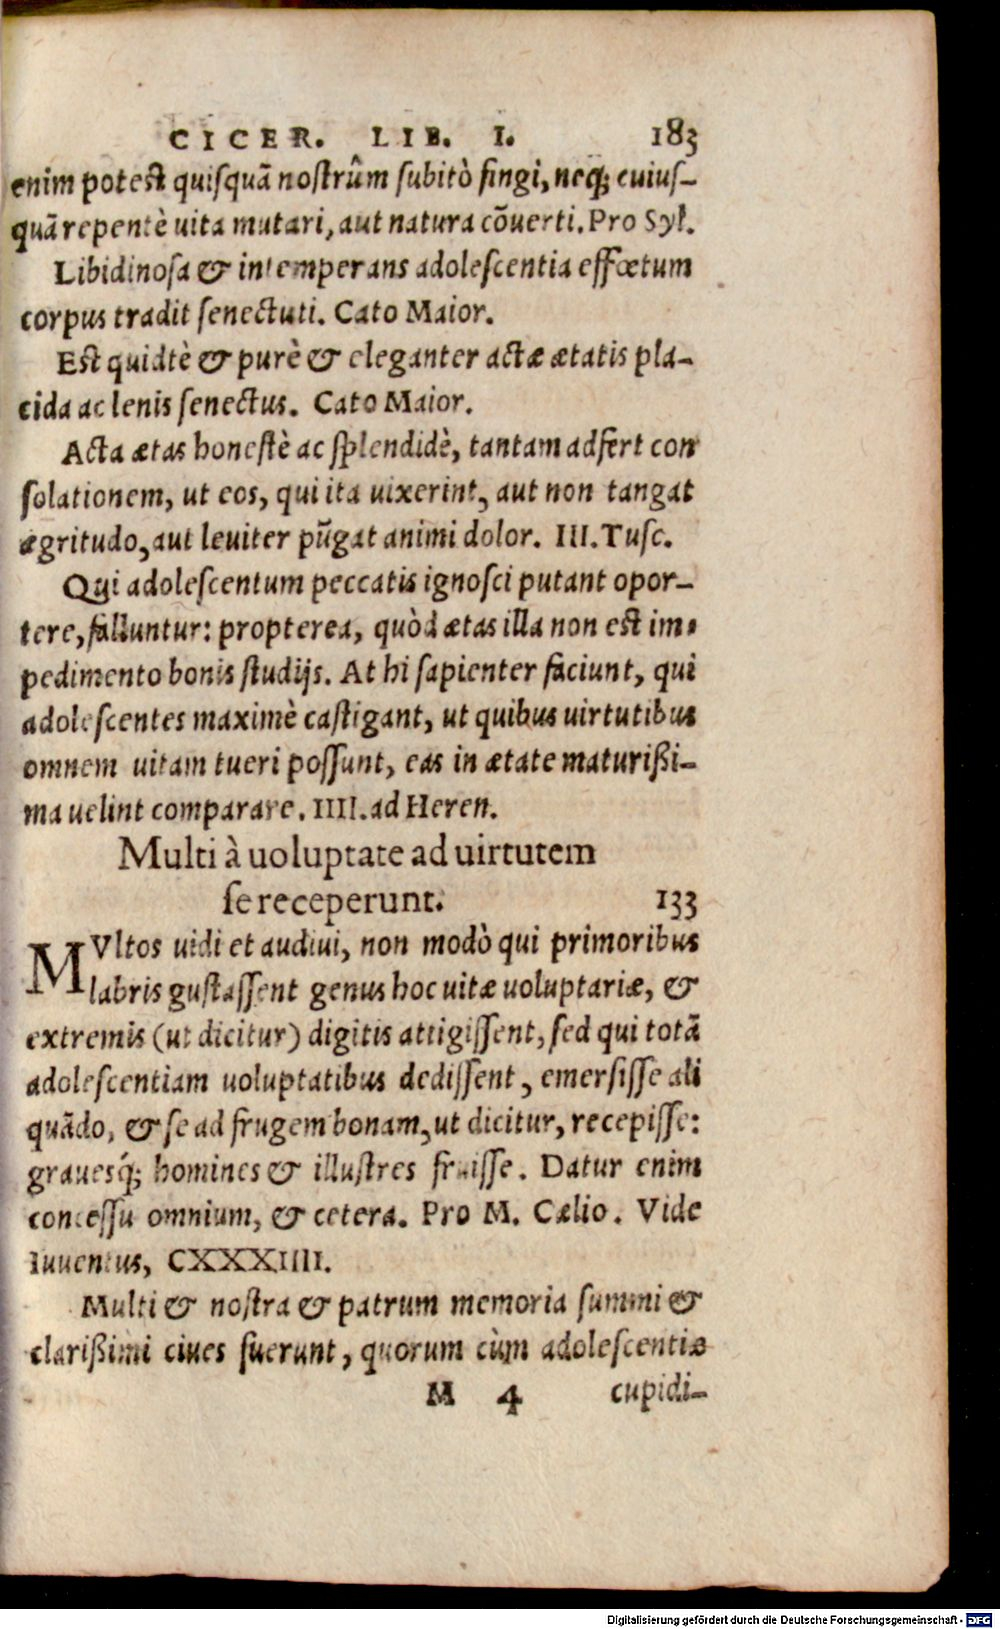 CICER. LIB. I. 183
enim potest quisquā nostrûm subitò fingi, neq; cuius-
quā repentè uita mutari, aut natura cōuerti. Pro Syl.
Libidinosa & intemperans adolescentia effœtum
corpus tradit senectuti. Cato Maior.
Est quidtè & purè & eleganter actæ ætatis pla-
cida ac lenis senectus. Cato Maior.
Acta ætas honestè ac splendidè, tantam adfert con
solationem, ut eos, qui ita uixerint, aut non tangat
ægritudo, aut leuiter pūgat animi dolor. III. Tusc.
Qui adolescentum peccatis ignosci putant opor-
tere, falluntur: propterea, quòd ætas illa non est im-
pedimento bonis studijs. At hi sapienter faciunt, qui
adolescentes maximè castigant, ut quibus uirtutibus
omnem uitam tueri possunt, eas in ætate maturißi-
ma uelint comparare. IIII. ad Heren.
Multi à uoluptate ad uirtutem
se receperunt. 133
MVltos uidi et audiui, non modò qui primoribus
labris gustassent genus hoc uitæ uoluptariæ, &
extremis (ut dicitur) digitis attigissent, sed qui totā
adolescentiam uoluptatibus dedissent, emersisse ali
quādo, & se ad frugem bonam, ut dicitur, recepisse:
grauesq́; homines & illustres fuisse. Datur enim
concessu omnium, & cetera. Pro M. Cælio. Vide
Iuuentus, CXXXIIII.
Multi & nostra & patrum memoria summi &
clarißimi ciues fuerunt, quorum cùm adolescentiæ
M 4 cupidi-
Digitalisierung gefördert durch die Deutsche Forschungsgemeinschaft - DFG